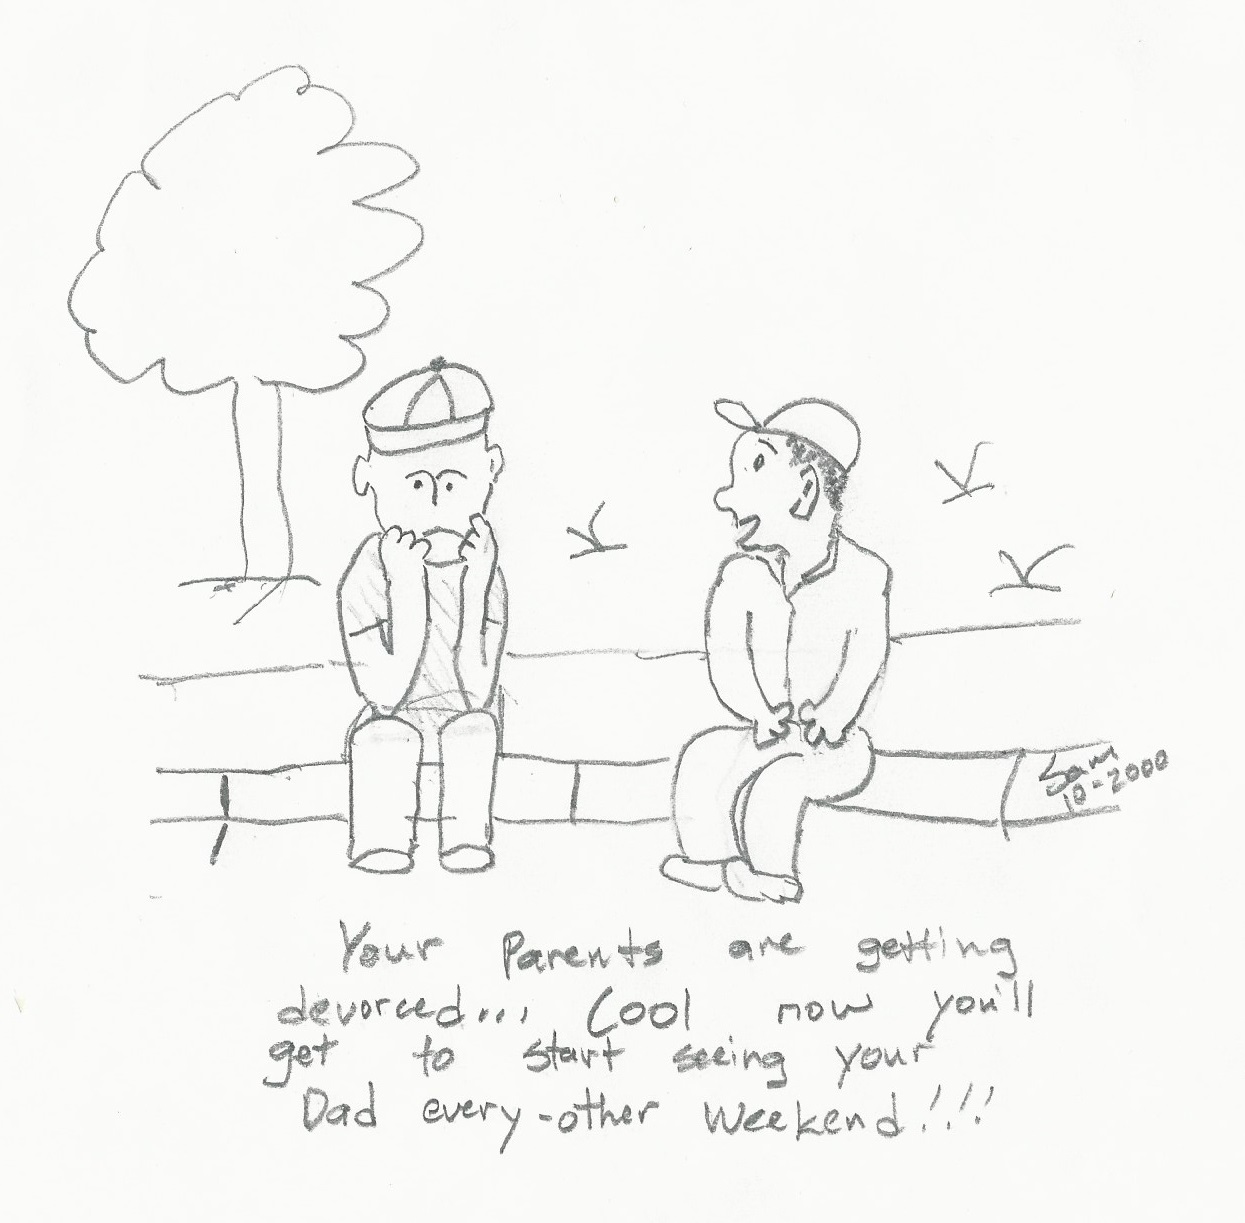 Sam
10-2000
Your Parents are getting
devorced... Cool now you'll
get to start seeing your
Dad every-other weekend!!!